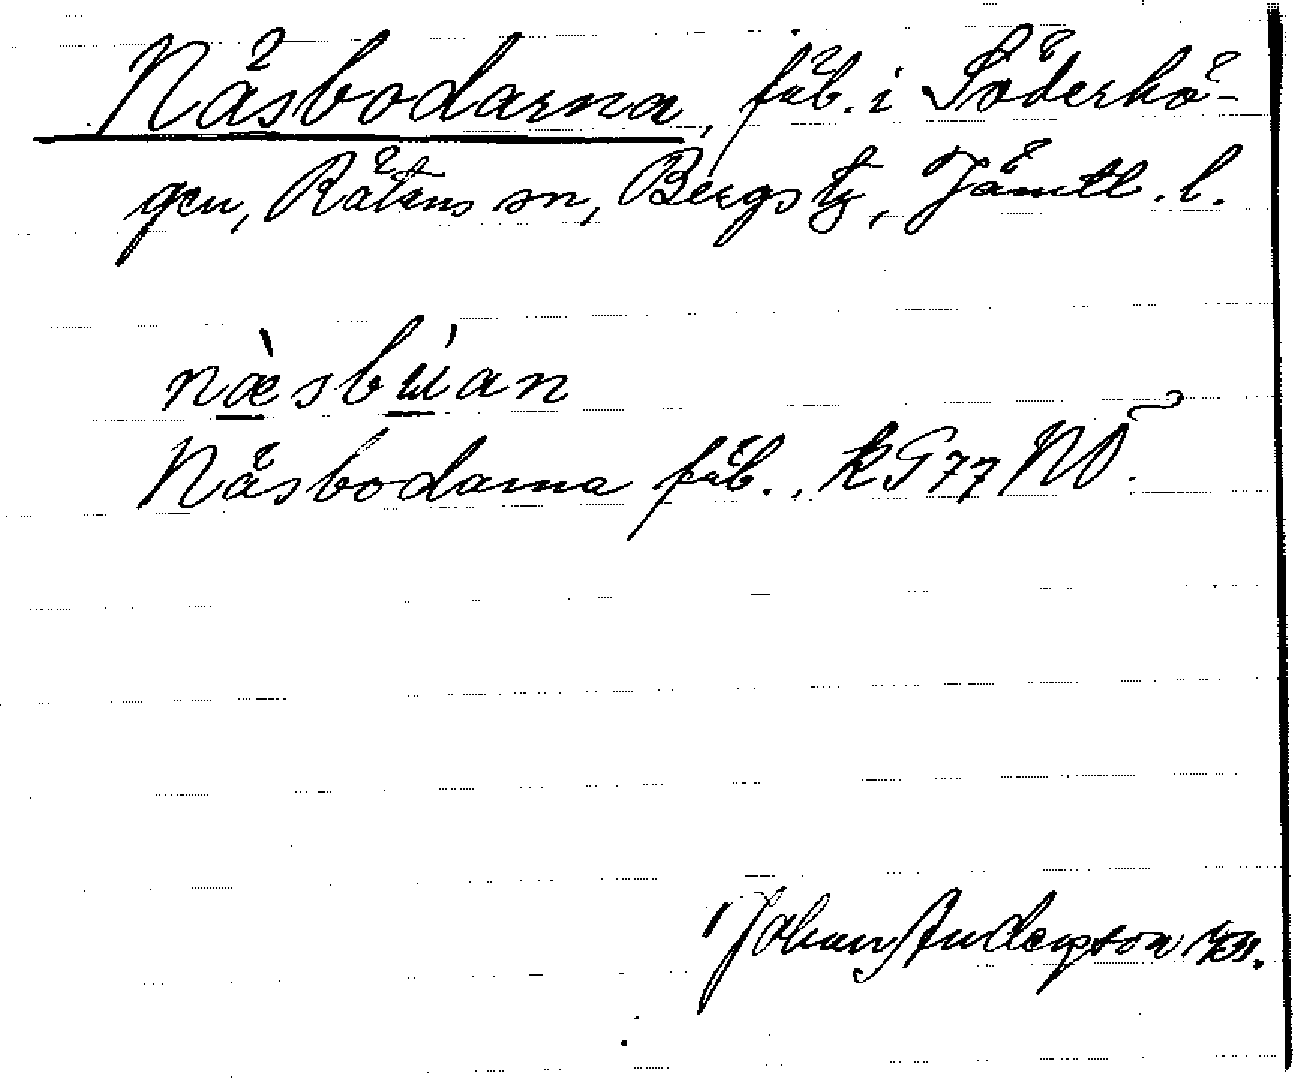 Näsbodarna, fäb. i Söderhö-
gen, Rätans sn, Bergs tg, Jämtl. l.
næ̀sbɯ́an
Näsbodarna fäb., kG77 NO.
Johan Anderson